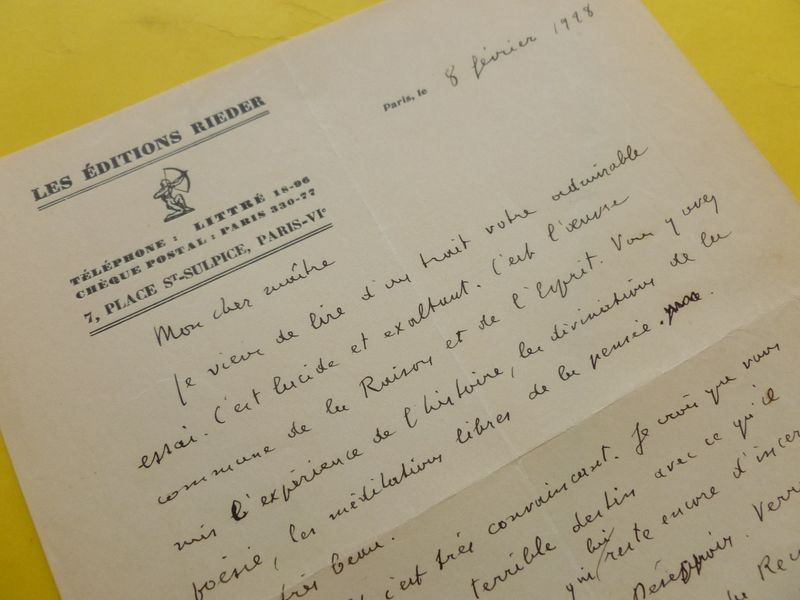 LES ÉDITIONS RIEDER
TÉLÉPHONE : LITTRÉ 18-96
CHÈQUE POSTAL : PARIS 330-77
7, PLACE ST-SULPICE, PARIS-VIe
Paris, le 8 février 1928
Mon cher maître
Je viens de lire d'un trait votre admirable
essai. C'est lucide et exaltant. C'est l'œuvre
commune de la Raison et de l'Esprit. Vous y avez
mis l'expérience de l'histoire, les divinations de la
poésie, les méditations libres de la pensée.
très beau.
c'est très convaincant. Je crois que vous
terrible destin avec ce qu'il
lui
qui reste encore d'incer
Désespoir. Verr